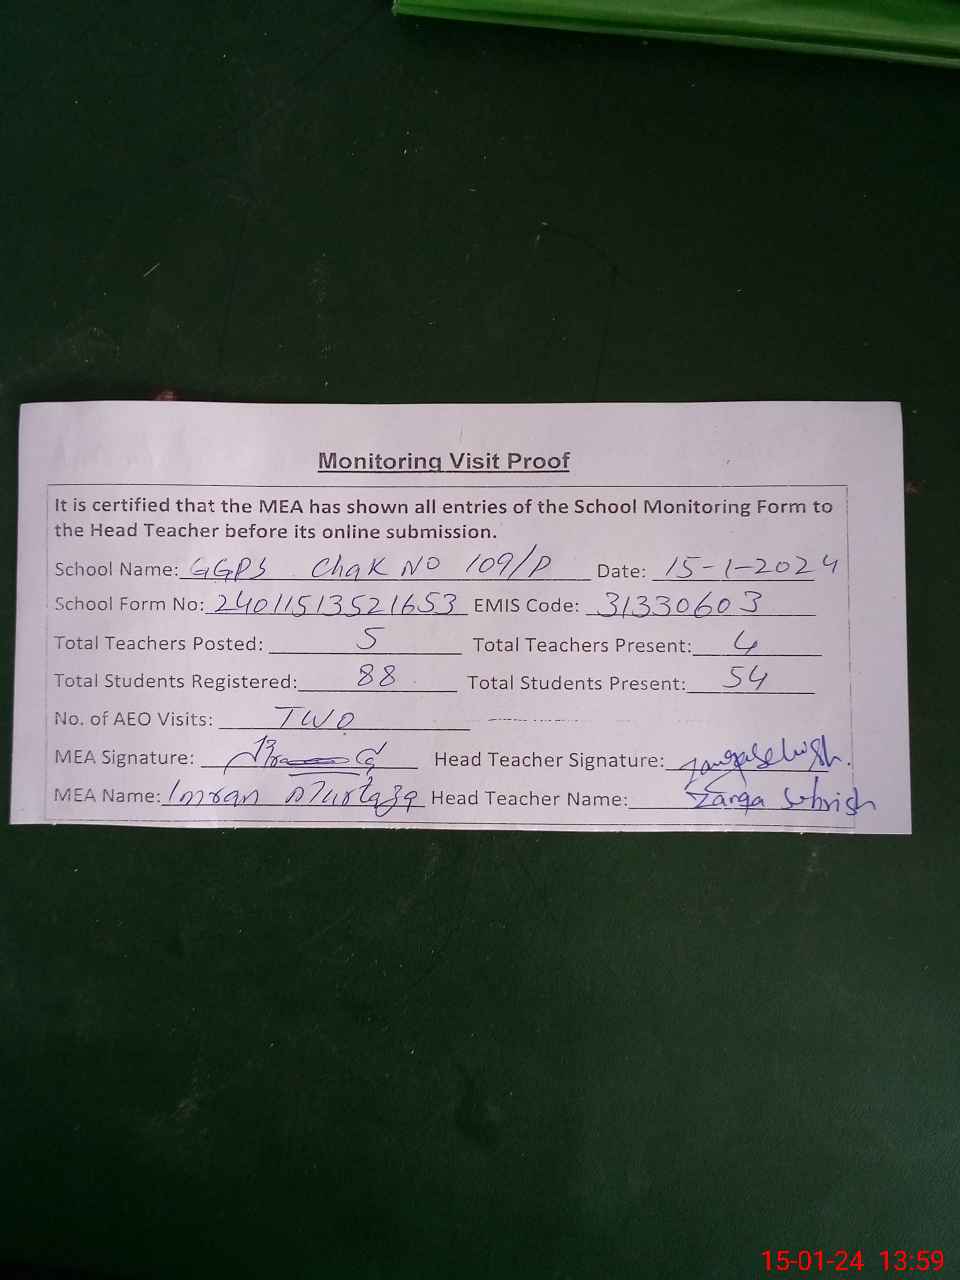 Monitoring Visit Proof
It is certified that the MEA has shown all entries of the School Monitoring Form to
the Head Teacher before its online submission.
School Name: GGPS Chak NO 109/P Date: 15-1-2024
School Form No: 24011513521653 EMIS Code: 31330603
Total Teachers Posted: 5 Total Teachers Present: 4
Total Students Registered: 88 Total Students Present: 54
No. of AEO Visits: TWO
MEA Signature: Head Teacher Signature: Zarqa Sehrish.
MEA Name: Imran Murtaza Head Teacher Name: Zarqa Sehrish
15-01-24 13:59